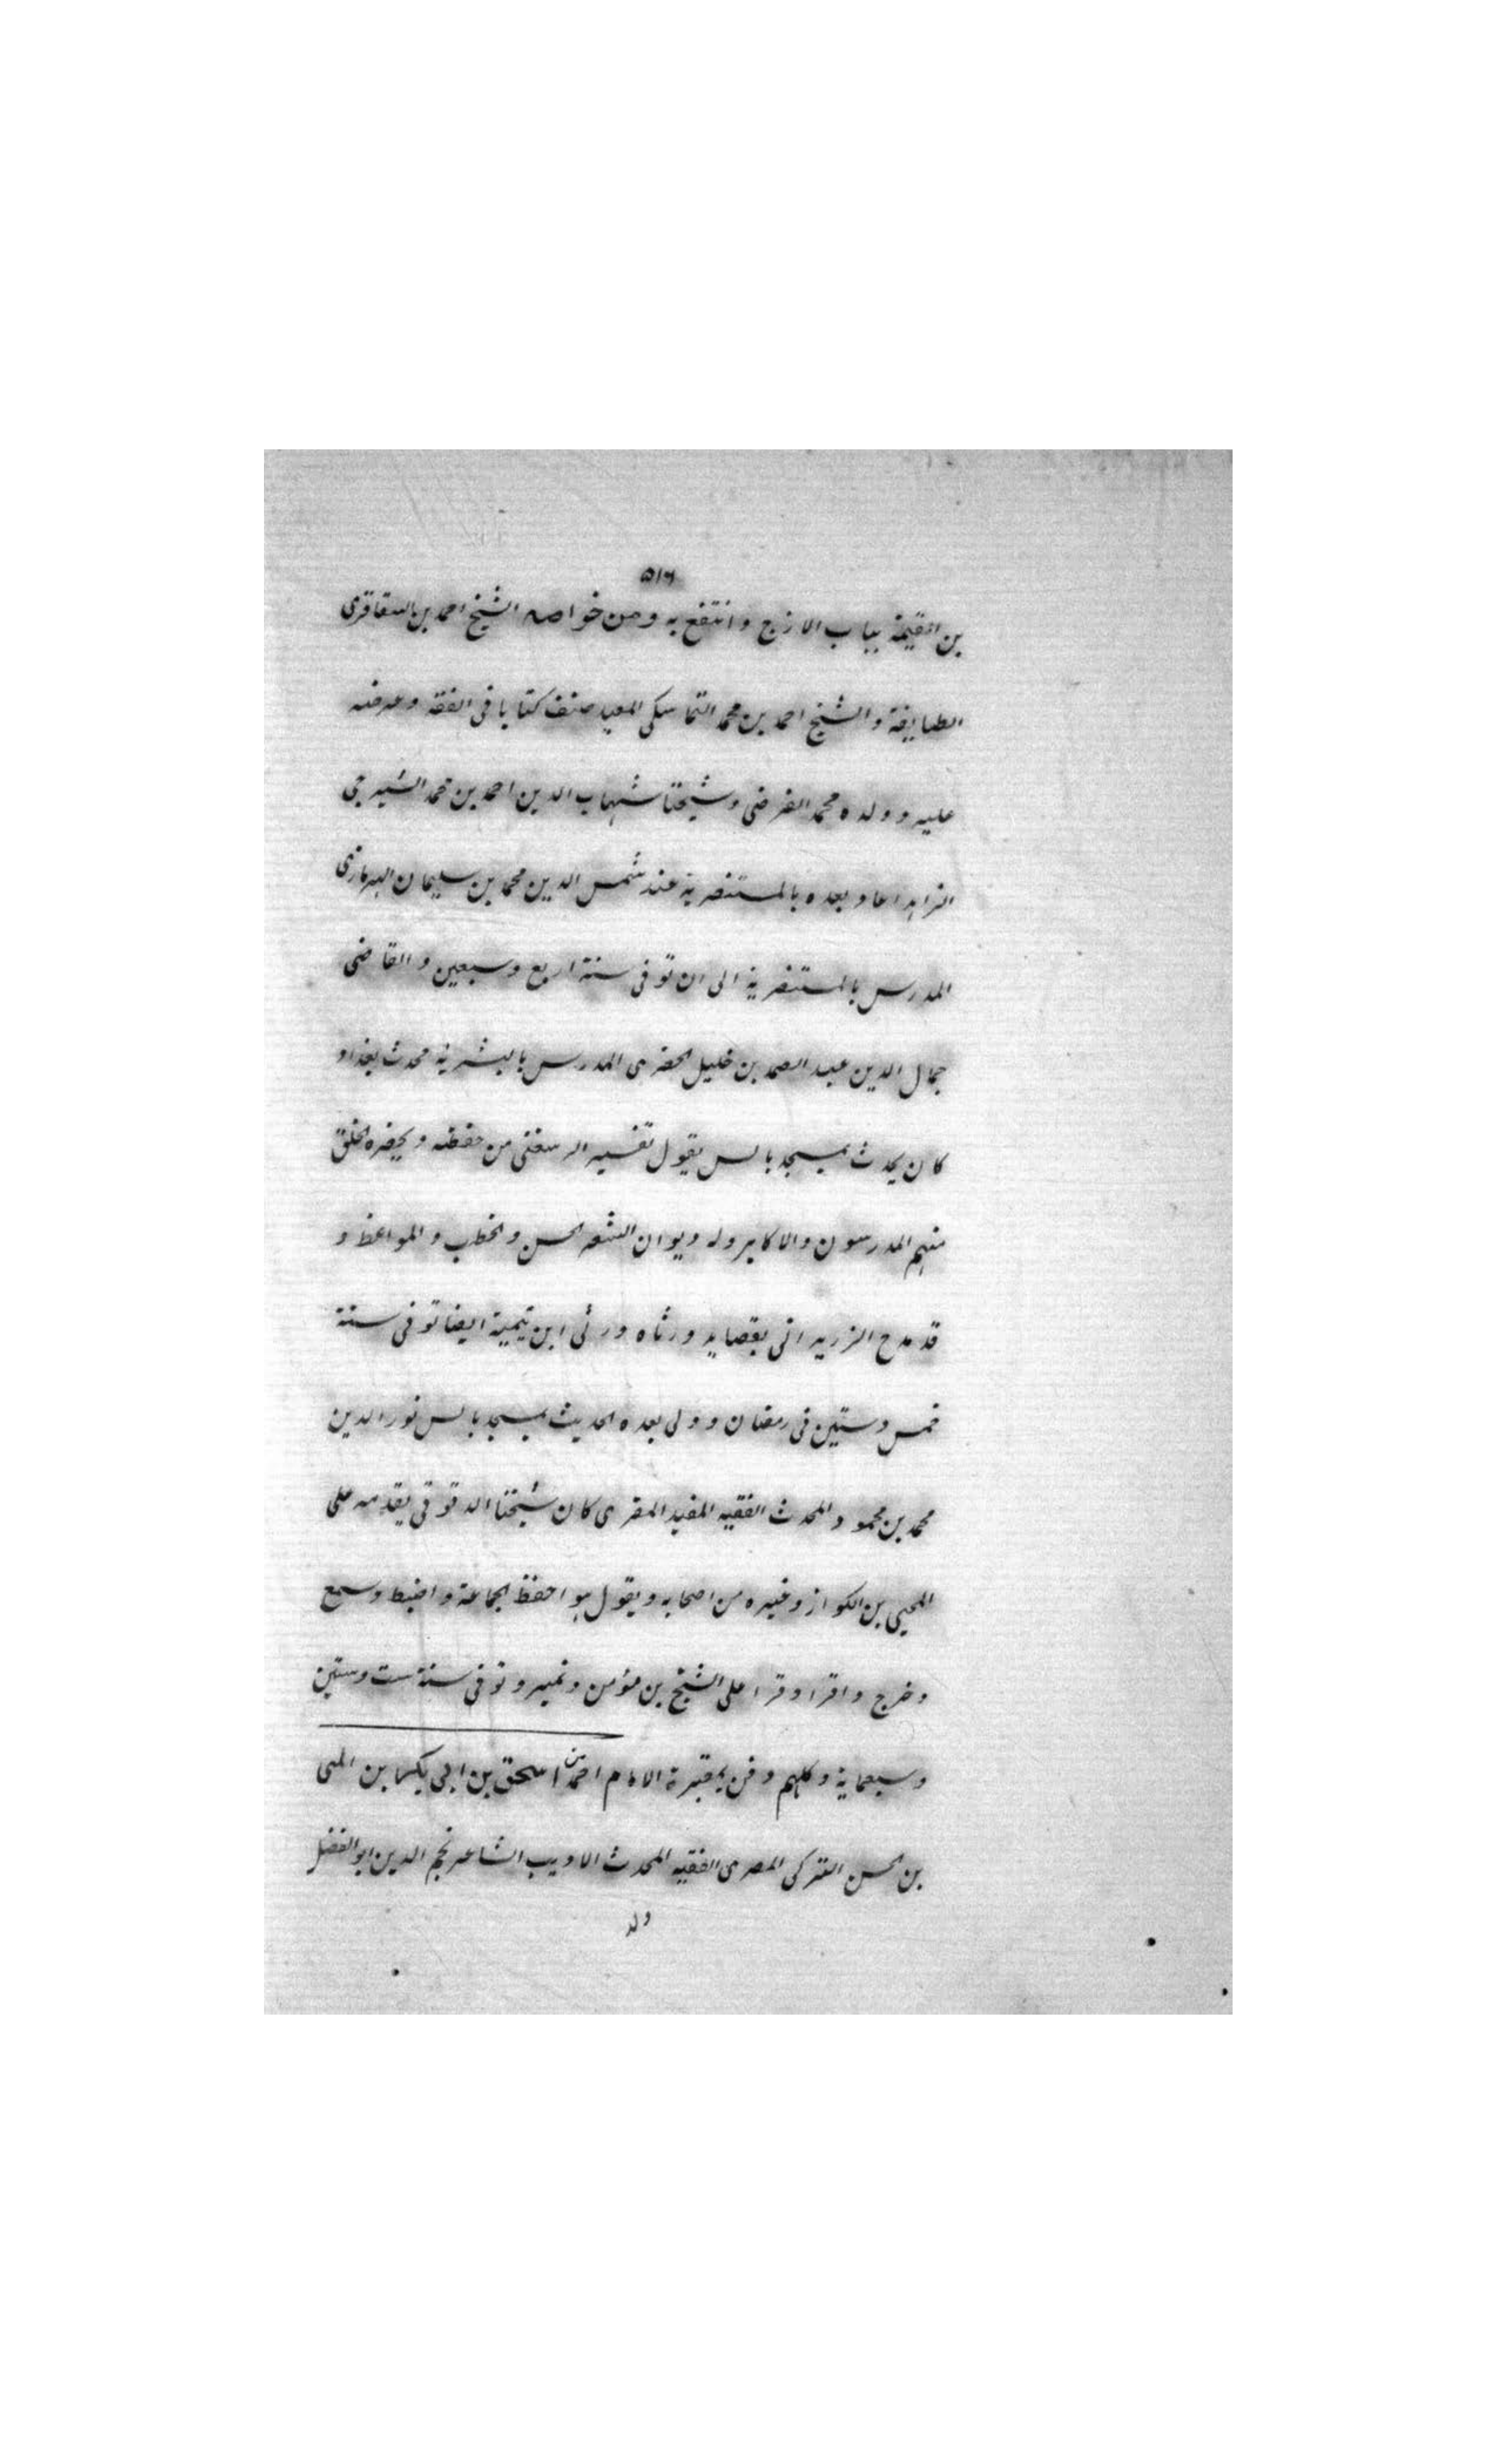 ٥١٦
بن القيمة بباب الازج وانتفع به ومن خواصه الشيخ احمد بن السقا قرى
الطايفة والشيخ احمد بن محمد التماسكى المعيد صنف كتابا فى الفقه وعرضه
عليه وولده محمد الفرضى وشيخنا شهاب الدين احمد بن محمد الشيرجى
الزاهد اعاد بعده بالمستنصرية عند شمس الدين محمد بن سليمان النهرمازى
المدرس بالمستنصرية الى ان توفى سنة اربع وسبعين والقاضى
جمال الدين عبد الصمد بن خليل الخضرى المدرس بالبشرية محدث بغداد
كان يحدث بمسجد بالس يقول تفسير الرسعنى من حفظه ويحضره الخلق
منهم المدرسون والاكابر وله ديوان الشعر الحسن والخطب والمواعظ و
قد مدح الزريرانى بقصايد ورثاه ورثى ابن تيمية ايضا توفى سنة
خمس وستين فى رمضان وولى بعده الحديث بمسجد بالس نور الدين
محمد بن محمود المحدث الفقيه المفيد المقرى كان شيخنا الدقوقى يقدمه على
المحيى بن الكواز وغيره من اصحابه ويقول هو احفظ الجماعة واضبط وسمع
وخرج واقرا وقرا على الشيخ بن مؤمن وغيره وتوفى سنة ست وستين
وسبعماية وكلهم دفن بمقبرة الامام احمد بن اسحق بن ابى بكر بن المى
بن الحسن التركى المصرى الفقيه المحدث الاديب الشاعر نجم الدين ابو الفضل
ولد